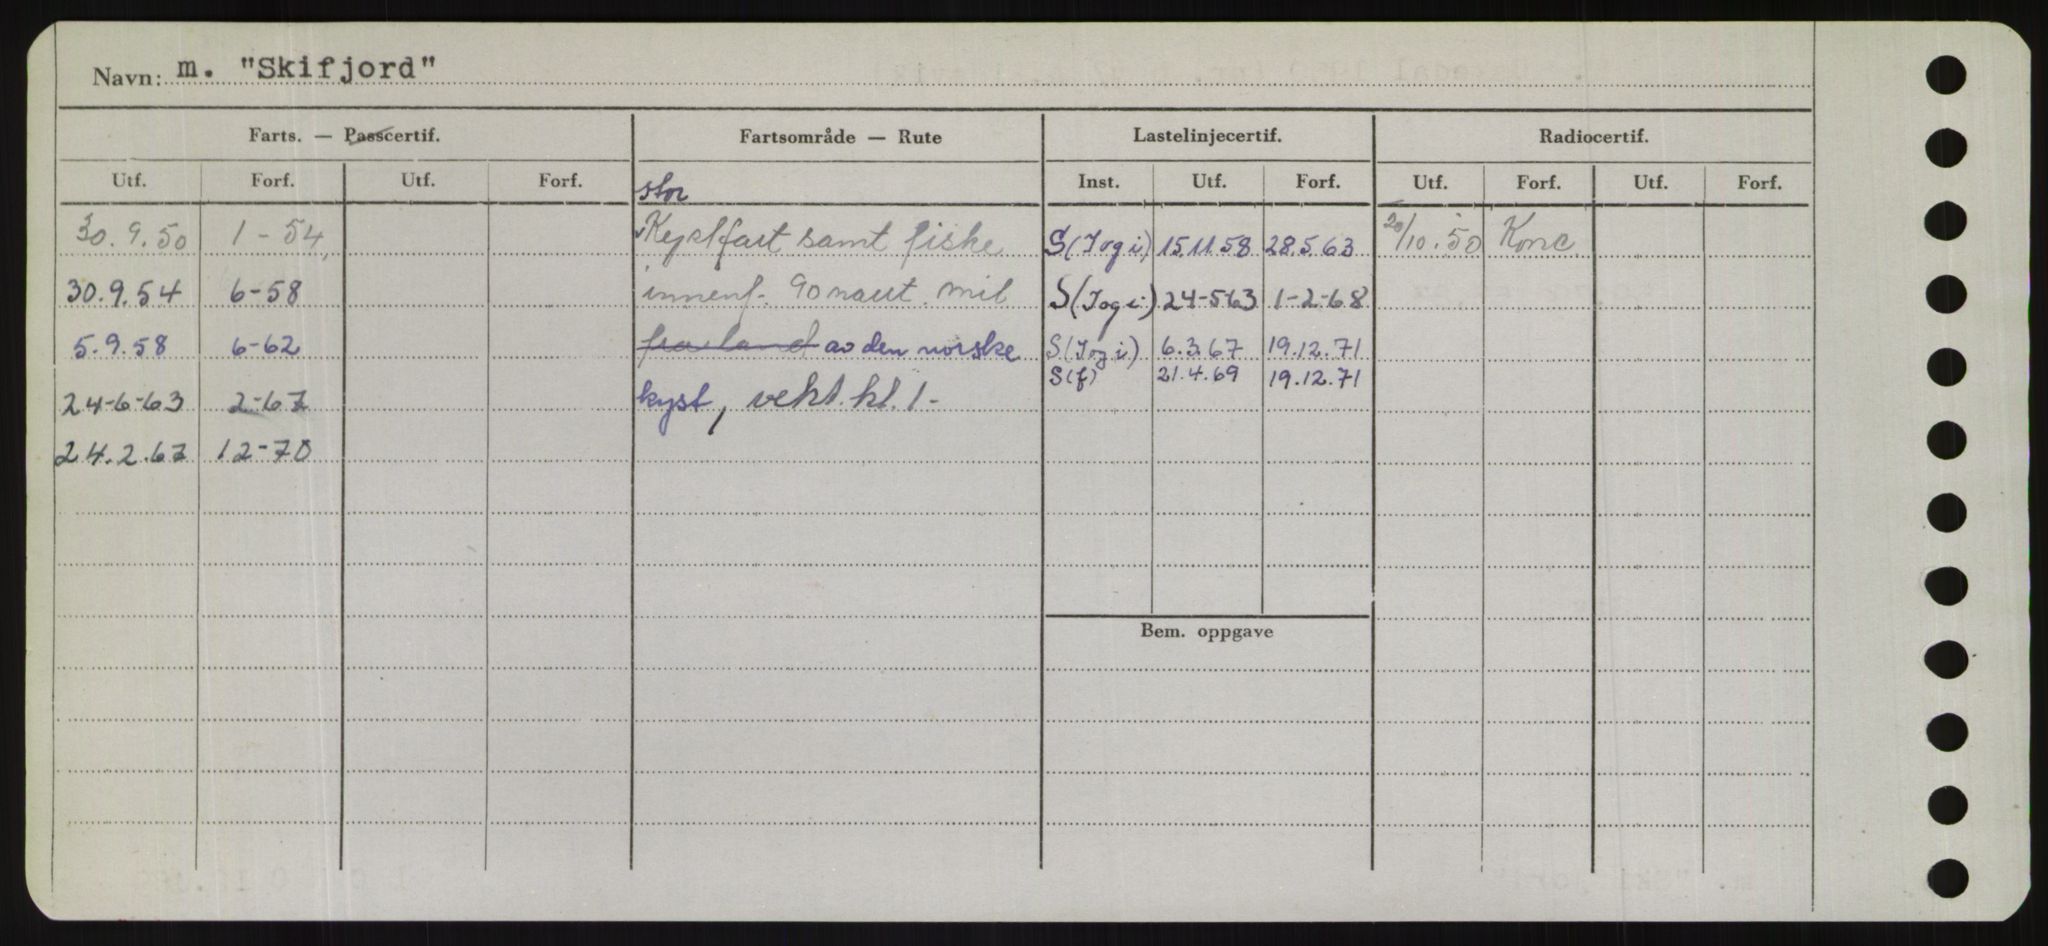 Navn: m. "Skifjord"
Farts. — Passcertif. Fartsområde — Rute Lastelinjecertif. Radiocertif.
Utf. Forf. Utf. Forf. Inst. Utf. Forf. Utf. Forf. Utf. Forf.
stor
30.9.50 1-54, Kystfart samt fiske S(Tog i) 15.11.58 28.5.63 20/10.50 Konc.
30.9.54 6-58 innenf. 90 naut. mil S(Tog i) 24-5-63 1-2-68
5.9.58 6-62 fra land av den norske S(Tog i) 6.3.67 19.12.71
S(f) 21.4.69 19.12.71
24-6-63 2-67 kyst, vekt.kl.1-
24.2.67 12-70
Bem. oppgave